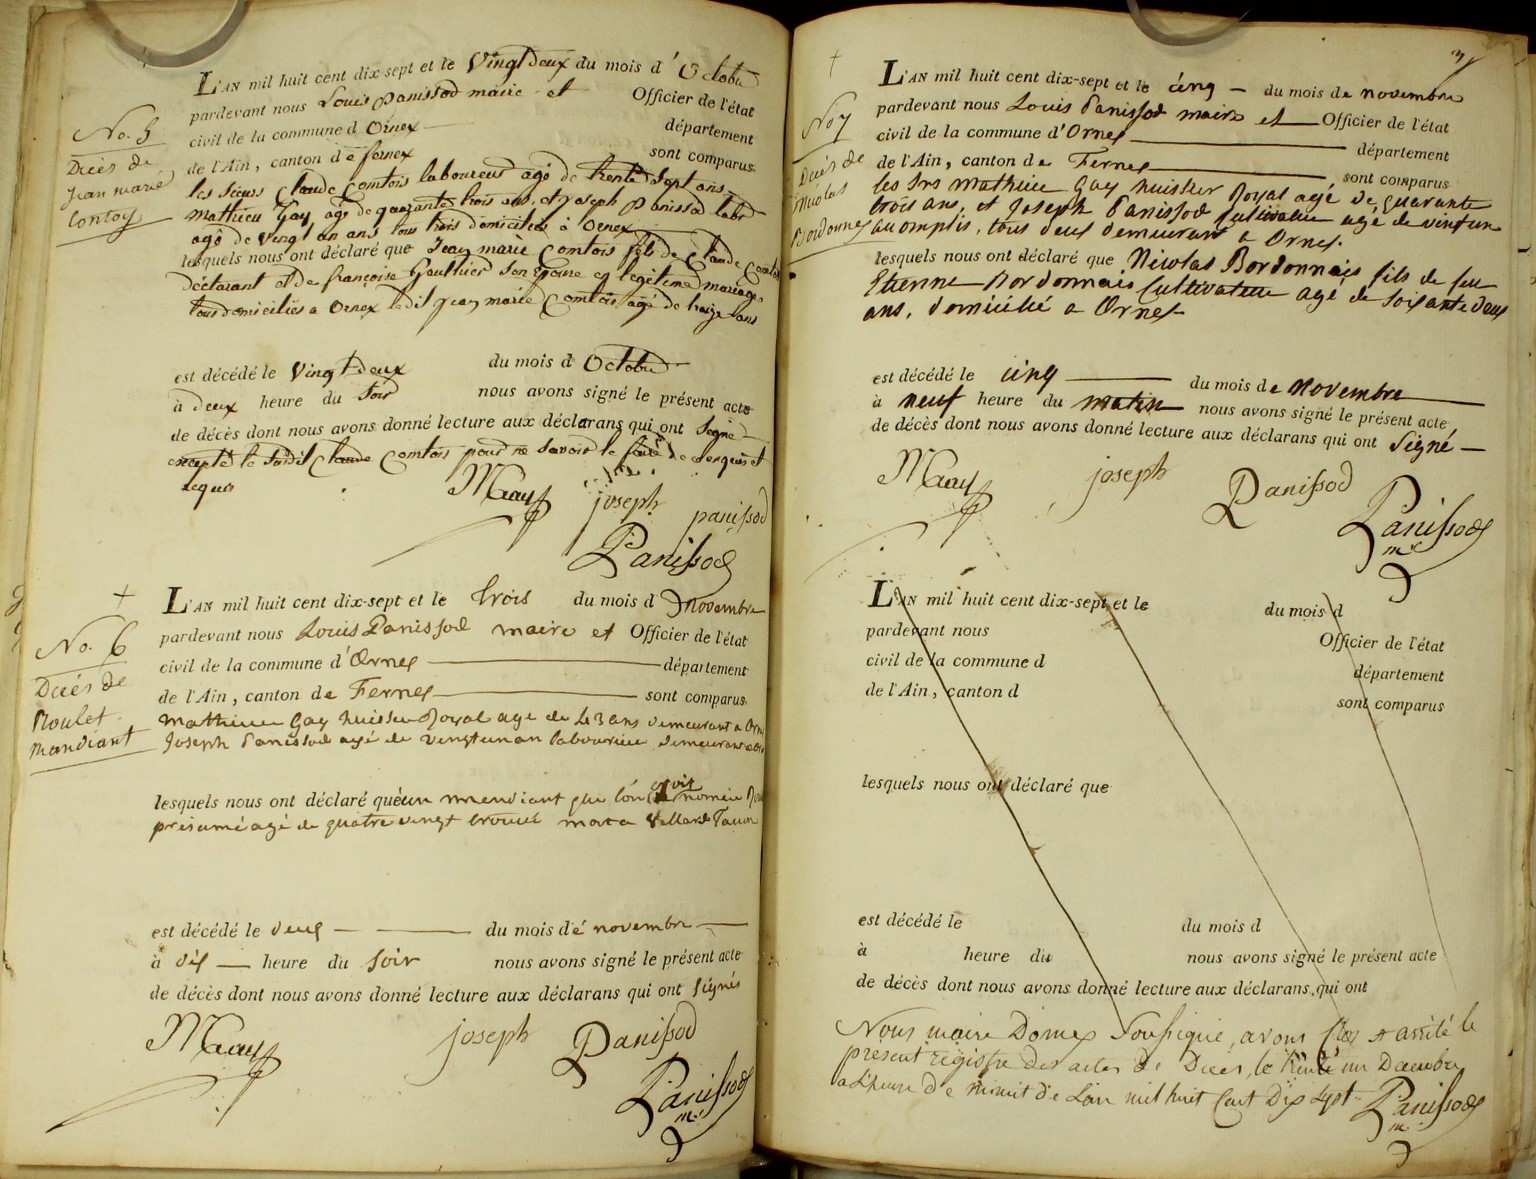 No. 5
Décès de
Jean marie
Contoy
L'AN mil huit cent dix-sept et le vingt deux du mois d'Octobre
pardevant nous Louis panissod maire et Officier de l'état
civil de la commune d Ornex département
de l'Ain, canton de fernex sont comparus
les sieurs Claude Comtois laboureur agé de trente sept ans
mathieu Gay agé de quarante trois ans, et joseph panissod labr
agé de vingt un ans tous trois domiciliés à Ornex
lesquels nous ont déclaré que Jean marie Comtois fils de Claude Comtois
déclarant et de françoise Gauthier son Epouse en legitime mariage,
tous domiciliés a Ornex ledit jean marie Comtois agé de traize ans
est décédé le vingt deux du mois d Octobre
à deux heure du soir nous avons signé le présent acte
de décès dont nous avons donné lecture aux déclarans qui ont signé
excepté le susdit Claude Comtois pour ne savoir le faire de ce requis et
requis
MGay joseph panissod
Panissod
+
No. 6
Décés de
Roulet
mandiant
L'AN mil huit cent dix-sept et le trois du mois d novembre
pardevant nous Louis Panissod maire et Officier de l'état
civil de la commune d'Ornex département
de l'Ain, canton de Fernex sont comparus
mathieu Gay huissier Royal agé de 43 ans demeurant a Orne
Joseph Panissod agé de vingtunan laboureur demeurant
lesquels nous ont déclaré qu'un mendiant que l'on nomée
présumé agé de quatre vingt trouvé mort a
est décédé le deux du mois de novembre
à dix heure du soir nous avons signé le présent acte
de décès dont nous avons donné lecture aux déclarans qui ont signés
MGay joseph Panissod
Panissod
me
+
No 7
Décés de
Nicolas
Bordonnex
L'AN mil huit cent dix-sept et le cinq du mois de novembre
pardevant nous Louis Panissod maire et Officier de l'état
civil de la commune d'Ornex département
de l'Ain, canton de Fernex sont comparus
les Srs mathieu Gay huissier Royal agé de quarante
trois ans, et Joseph Panissod Cultivateur agé de vintun
accomplis, tous deux demeurant a Ornex.
lesquels nous ont déclaré que Nicolas Bordonnais fils de feu
Etienne Bordonnais Cultivateur agé de soisante deux
ans, domicilié a Ornex
est décédé le cinq du mois de novembre
à neuf heure du matin nous avons signé le présent acte
de décès dont nous avons donné lecture aux déclarans qui ont signé
MGay joseph Panissod
Panissod
me
L'AN mil huit cent dix-sept et le du mois d
pardevant nous Officier de l'état
civil de la commune d département
de l'Ain, canton d sont comparus
lesquels nous ont déclaré que
est décédé le du mois d
à heure du nous avons signé le présent acte
de décès dont nous avons donné lecture aux déclarans qui ont
Nous maire Dornex Soussigné, avons Clos et arrêté le
présent registre des actes de Décés, le trente un Décembre
a L'heure de minuit de L'an mil huit Cent Dix Sept
Panissod
me